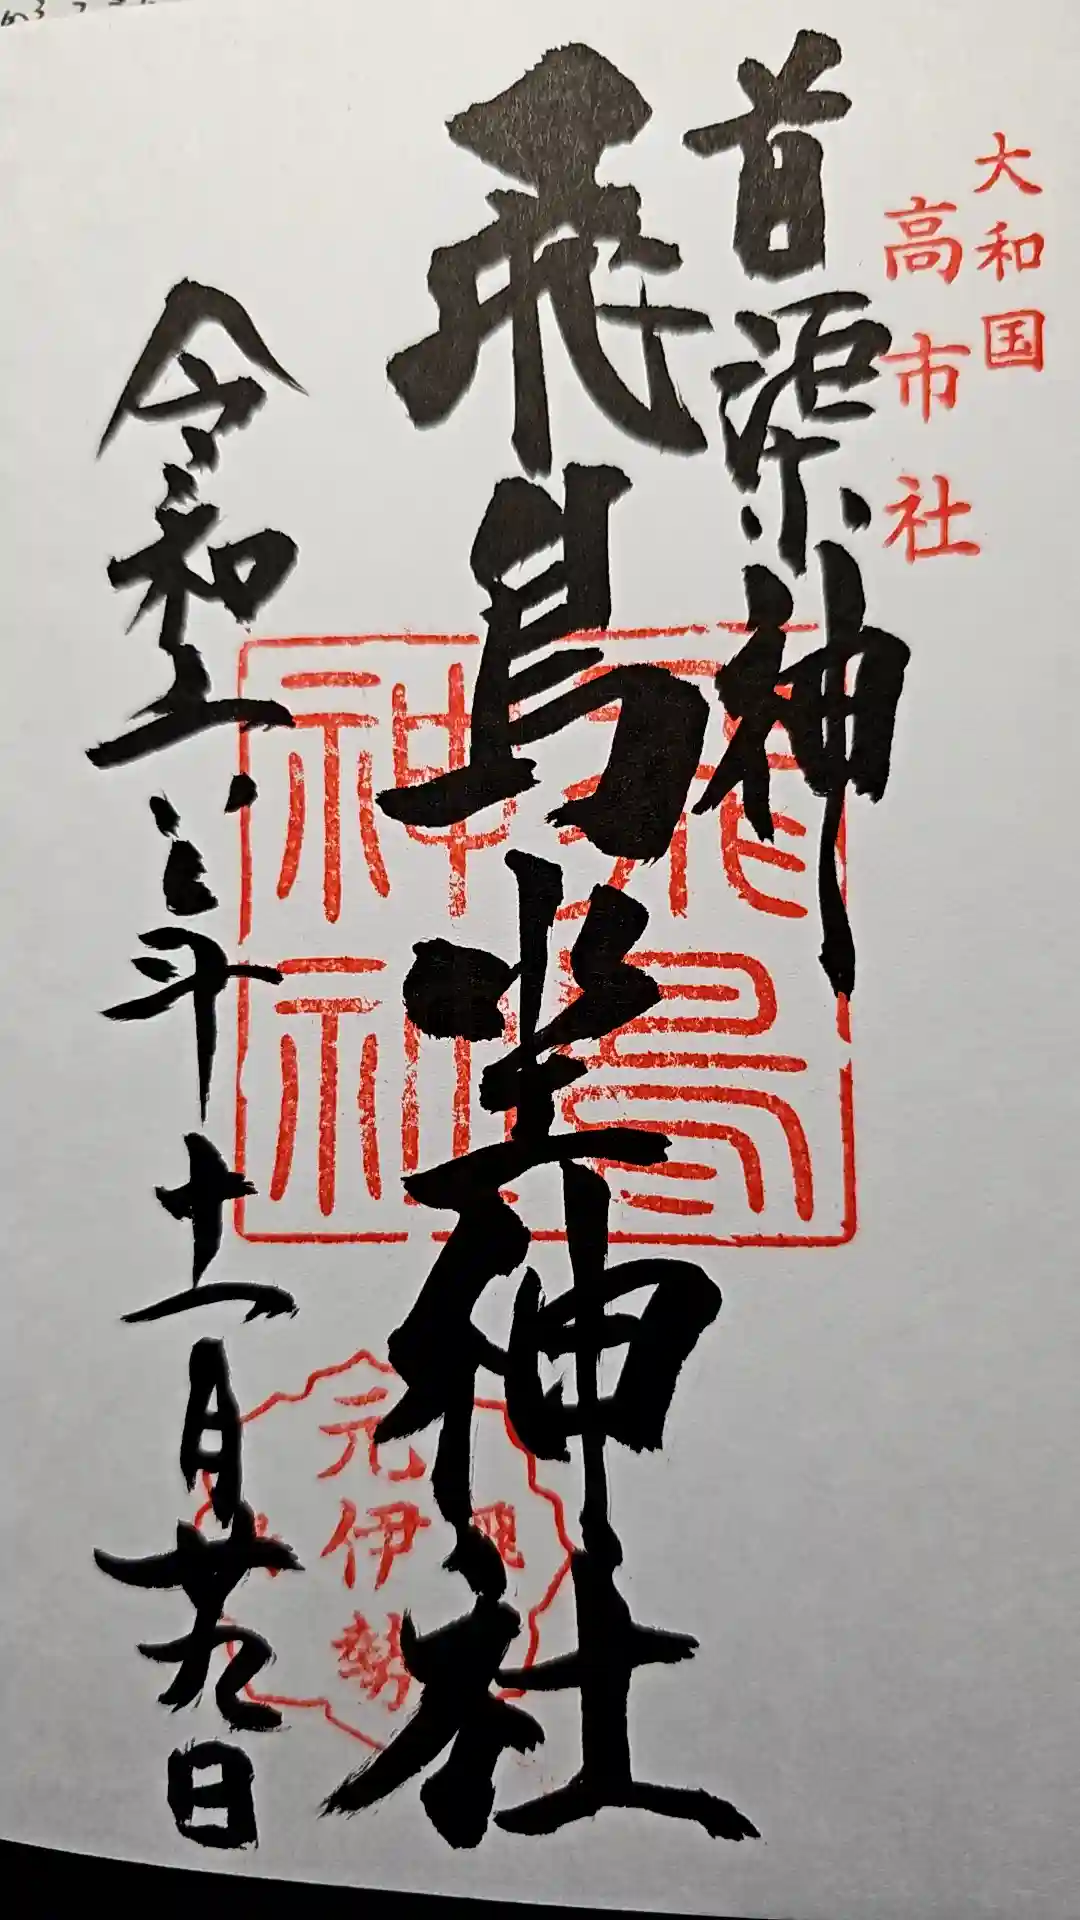 大和国
高市社
首渠神
飛鳥坐神社
飛鳥
神社
元伊勢
令和六年十一月廿九日